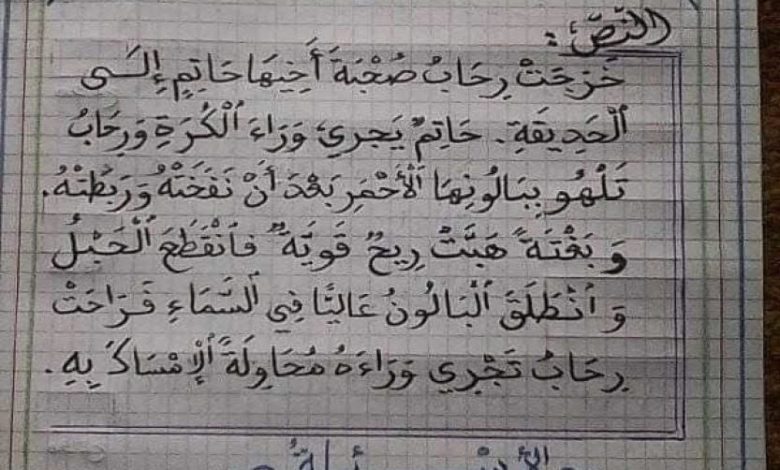 النّصّ :
خَرَجَتْ رِحَابُ صُحْبَةَ أَخِيهَا حَاتِمٍ إِلَى
ٱلْحَدِيقَةِ. حَاتِمٌ يَجرِي وَرَاءَ ٱلْكُرَةِ وَرِحَابُ
تَلْهُو بِبَالُونِهَا ٱلْأَحْمَرِ بَعْدَ أَنْ نَفَخَتْهُ وَرَبَطَتْهُ.
وَ بَغْتَةً هَبَّتْ رِيحٌ قَوِيَّةٌ فَٱنْقَطَعَ ٱلْحَبْلُ
وَ ٱنْطَلَقَ ٱلْبَالُونُ عَالِيًا فِي ٱلسَّمَاءِ فَرَاحَتْ
رِحَابُ تَجْرِي وَرَاءَهُ مُحَاوِلَةً ٱلْإِمْسَاكَ بِهِ.